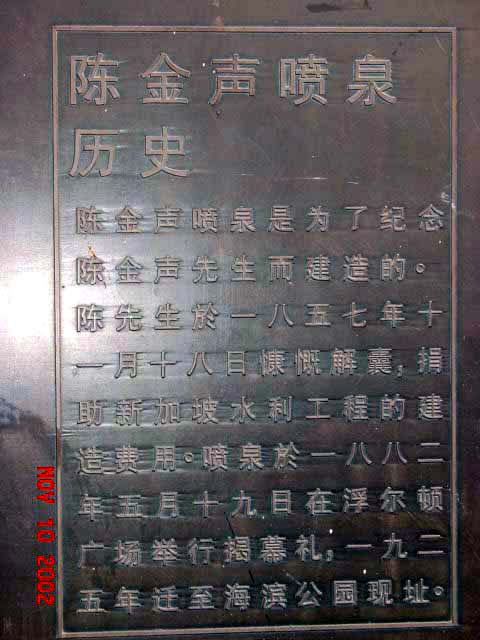 陈金声喷泉
历史
陈金声喷泉是为了纪念
陈金声先生而建造的。
陈先生於一八五七年十
一月十八日慷慨解囊,捐
助新加坡水利工程的建
造费用。喷泉於一八八二
年五月十九日在浮尔顿
广场举行揭幕礼,一九二
五年迁至海滨公园现址。
NOV 10 2002